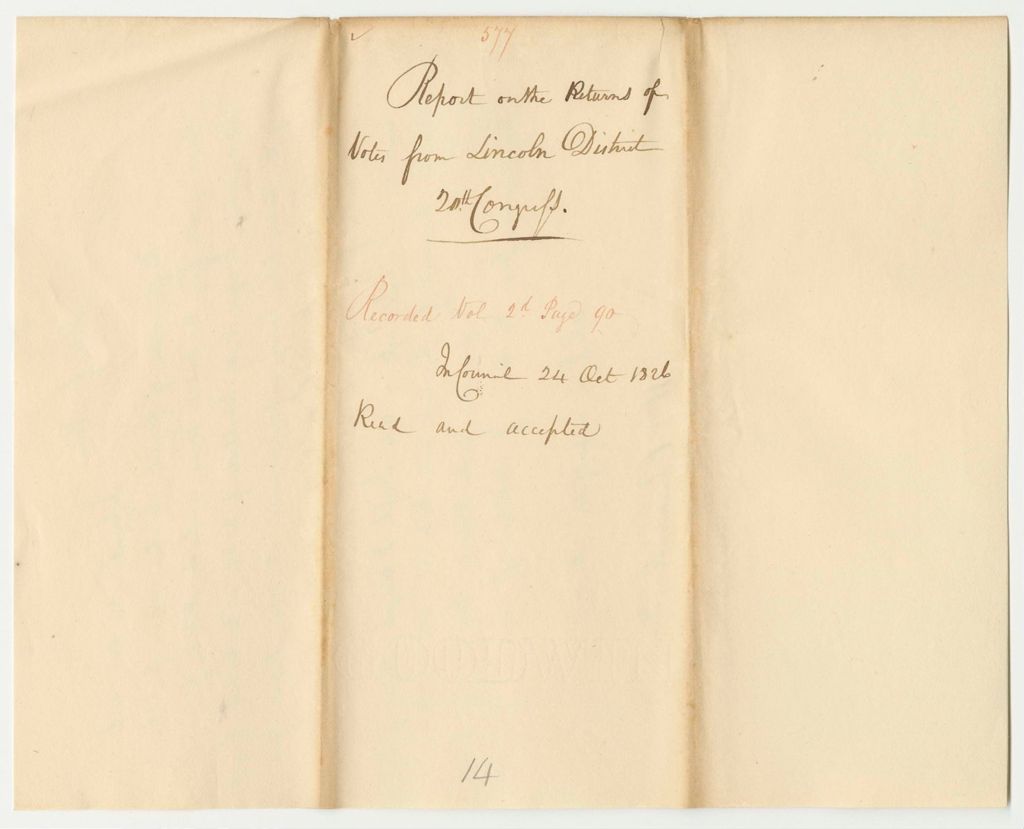 577
Report on the Returns of
Votes from Lincoln District
20th Congress.
Recorded Vol 2d Page 90
In Council 24 Oct 1826
Read and accepted
14